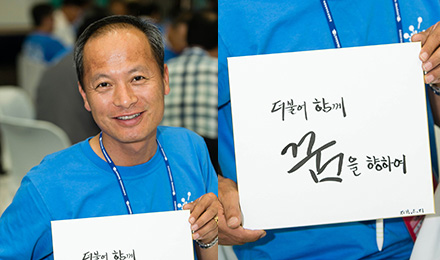 더불어 함께
더불어 함께
꿈을 향하여